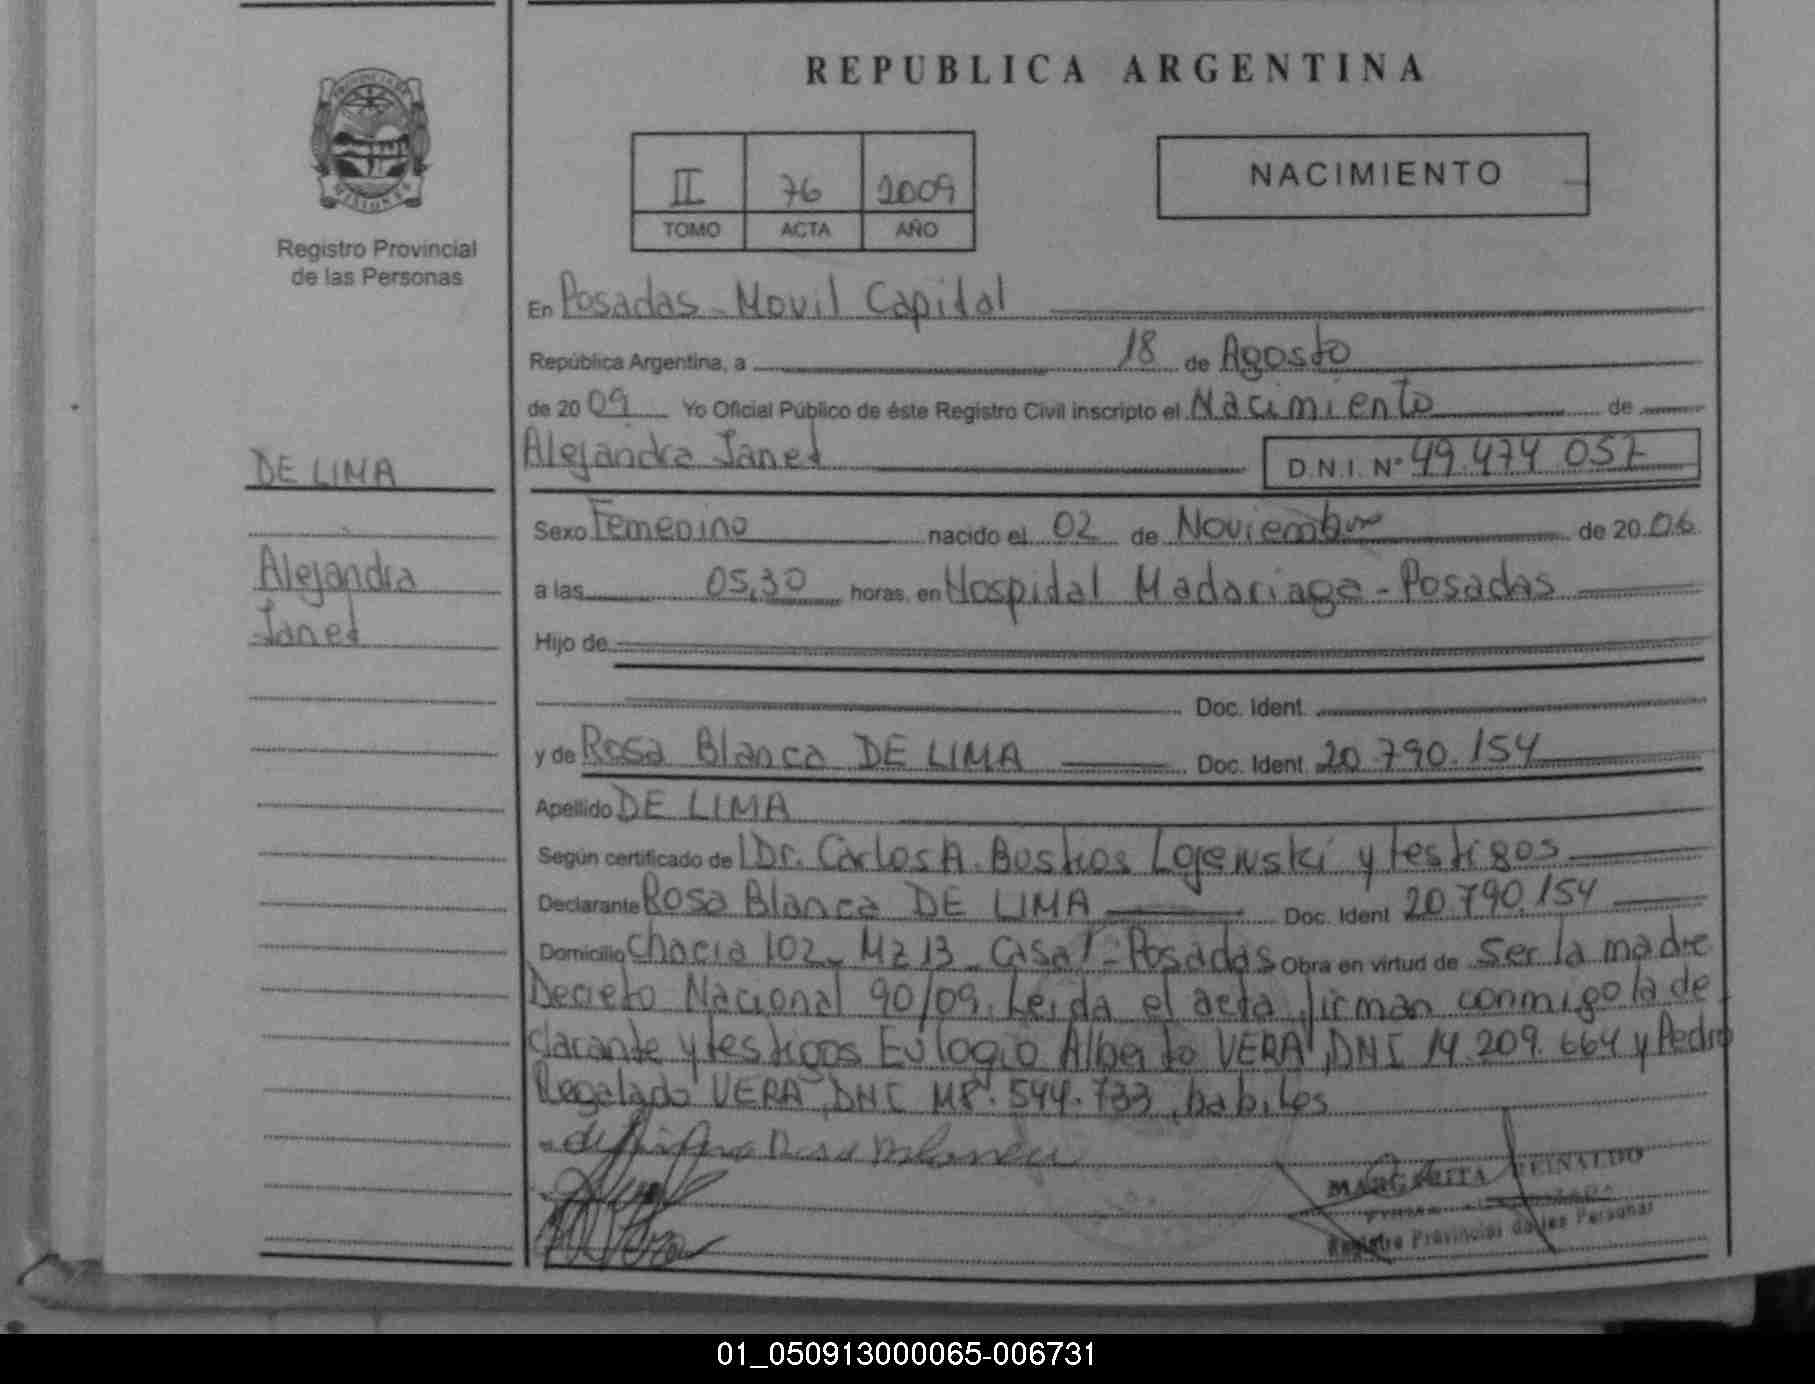 REPUBLICA ARGENTINA
PROVINCIA DE
MISIONES
Registro Provincial
de las Personas
II 76 2009
TOMO ACTA AÑO
NACIMIENTO
En Posadas - Movil Capital
República Argentina, a 18 de Agosto
de 20 09 Yo Oficial Público de éste Registro Civil inscripto el Nacimiento de
Alejandra Janet D.N.I. Nº 49.474 057
DE LIMA
Alejandra
Janet
Sexo Femenino nacido el 02 de Noviembre de 20 06
a las 05,30 horas, en Hospital Madariaga - Posadas
Hijo de
Doc. Ident.
y de Rosa Blanca DE LIMA Doc. Ident. 20.790.154
Apellido DE LIMA
Según certificado de Dr. Carlos A. Bustros Lojewski y testigos
Declarante Rosa Blanca DE LIMA Doc. Ident 20.790.154
Domicilio Chacra 102 - Mz 13 - Casa 1 - Posadas Obra en virtud de ser la madre
Decreto Nacional 90/09. Leida el acta, firman conmigo la de
clarante y testigos Eulogio Alberto VERA, DNI 14.209.664 y Pedro
Regalado VERA, DNI M8.544.733, habiles
MARGARITA REINALDO
Registro Provincial de las Personas
01_050913000065-006731